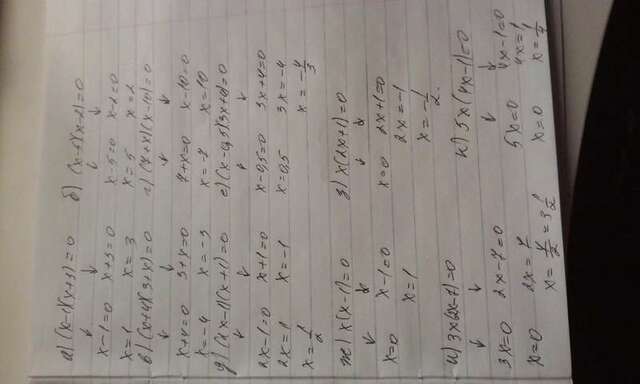 а) (x-1)(x+3)=0
x-1=0 x+3=0
x=1 x=3
б) (x-5)(x-2)=0
x-5=0 x-2=0
x=5 x=2
в) (x+4)(3+x)=0
x+4=0 3+x=0
x=-4 x=-3
г) (7+x)(x-10)=0
7+x=0 x-10=0
x=-7 x=10
д) (2x-1)(x+1)=0
2x-1=0 x+1=0
2x=1 x=-1
x=1/2
е) (x-0,5)(3x+4)=0
x-0,5=0 3x+4=0
x=0,5 3x=-4
x=-4/3
ж) x(x-1)=0
x=0 x-1=0
x=1
з) x(2x+1)=0
x=0 2x+1=0
2x=-1
x=-1/2.
и) 3x(2x-7)=0
3x=0 2x-7=0
x=0 2x=7
x=7/2=3 1/2
к) 5x(4x-1)=0
5x=0 4x-1=0
x=0 4x=1
x=1/4